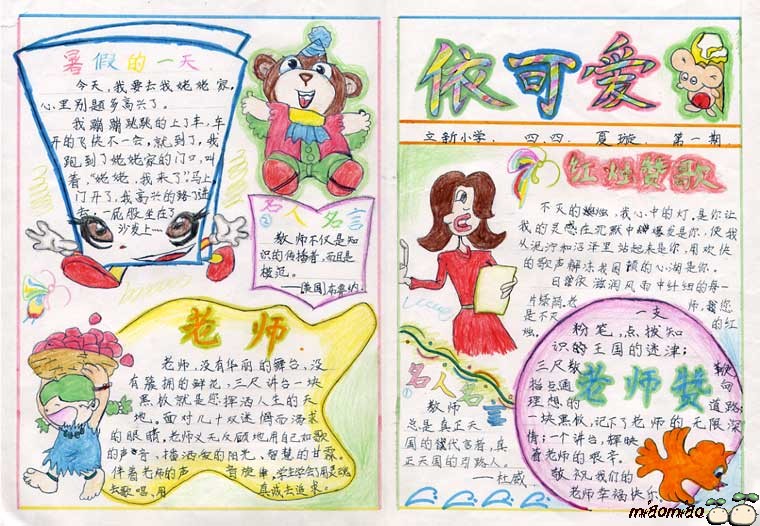 暑假的一天
今天,我要去我姥姥家,
心里别题多高兴了。
我蹦蹦跳跳的上了车,车
开的飞快不一会,就到了,我
跑到了姥姥家的门口,叫
着,“姥姥,我来了”马上,
门开了,我高兴的
去,一屁股坐在了
沙发上……
名人名言
②
教师不仅是知
识的传播者,而且是
模范。
——[美国]布鲁纳
老师
老师,没有华丽的舞台,没
有簇拥的鲜花,三尺讲台一块
黑板就是您挥洒人生的天
地。面对几十双迷惘而渴求
的眼睛,老师义无反顾地用自己如歌
的声音,播洒爱的阳光、智慧的甘霖。
伴着老师的声音旋律,学生学会了用灵魂
去歌唱,用真诚去追求。
依可爱
立新小学、四、四、夏璇、第一期
红烛赞歌
不灭的,我心中的灯。是你让
我的灵感在沉默中爆发是你,使我
从泥泞和沼泽里站起来是你,用欢快
的歌声解冻我困顿的心湖是你。
滋润风雨中纤细的每一
片绿荫。老师,我您
是不灭的红
烛。
名人名言
①
教师
总是真正天
国的代言者,真
正天国的引路人。
——杜威
老师赞
一支
粉笔,点拨知
识的王国的迷津;
三尺教鞭
指点通向
理想的道路;
一块黑板,记下了老师的无限深
情;一个讲台,辉映
着老师的艰辛。
敬祝我们的
老师幸福快乐
miaomiao